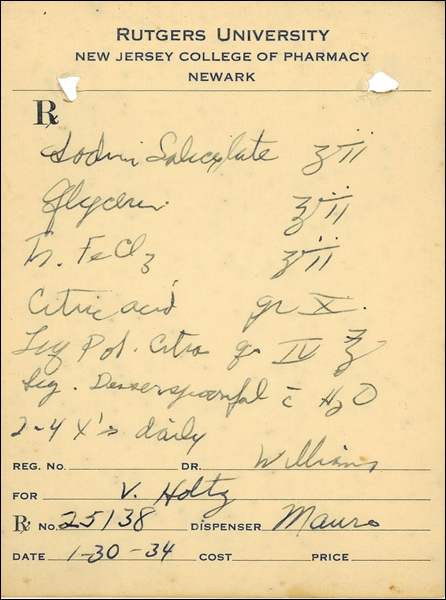 RUTGERS UNIVERSITY
NEW JERSEY COLLEGE OF PHARMACY
NEWARK
℞
Sodium Salicylate ʒii
Glycerin ʒii
Tr. FeCl3 ʒii
Citric acid gr X.
Liq Pot. Citra q IV ℥
Sig. Dessertspoonful c̄ H2O
2-4 X's daily
REG. NO. DR. Williams
FOR V. Holtz
℞ NO. 25138 DISPENSER Mauro
DATE 1-30-34 COST PRICE